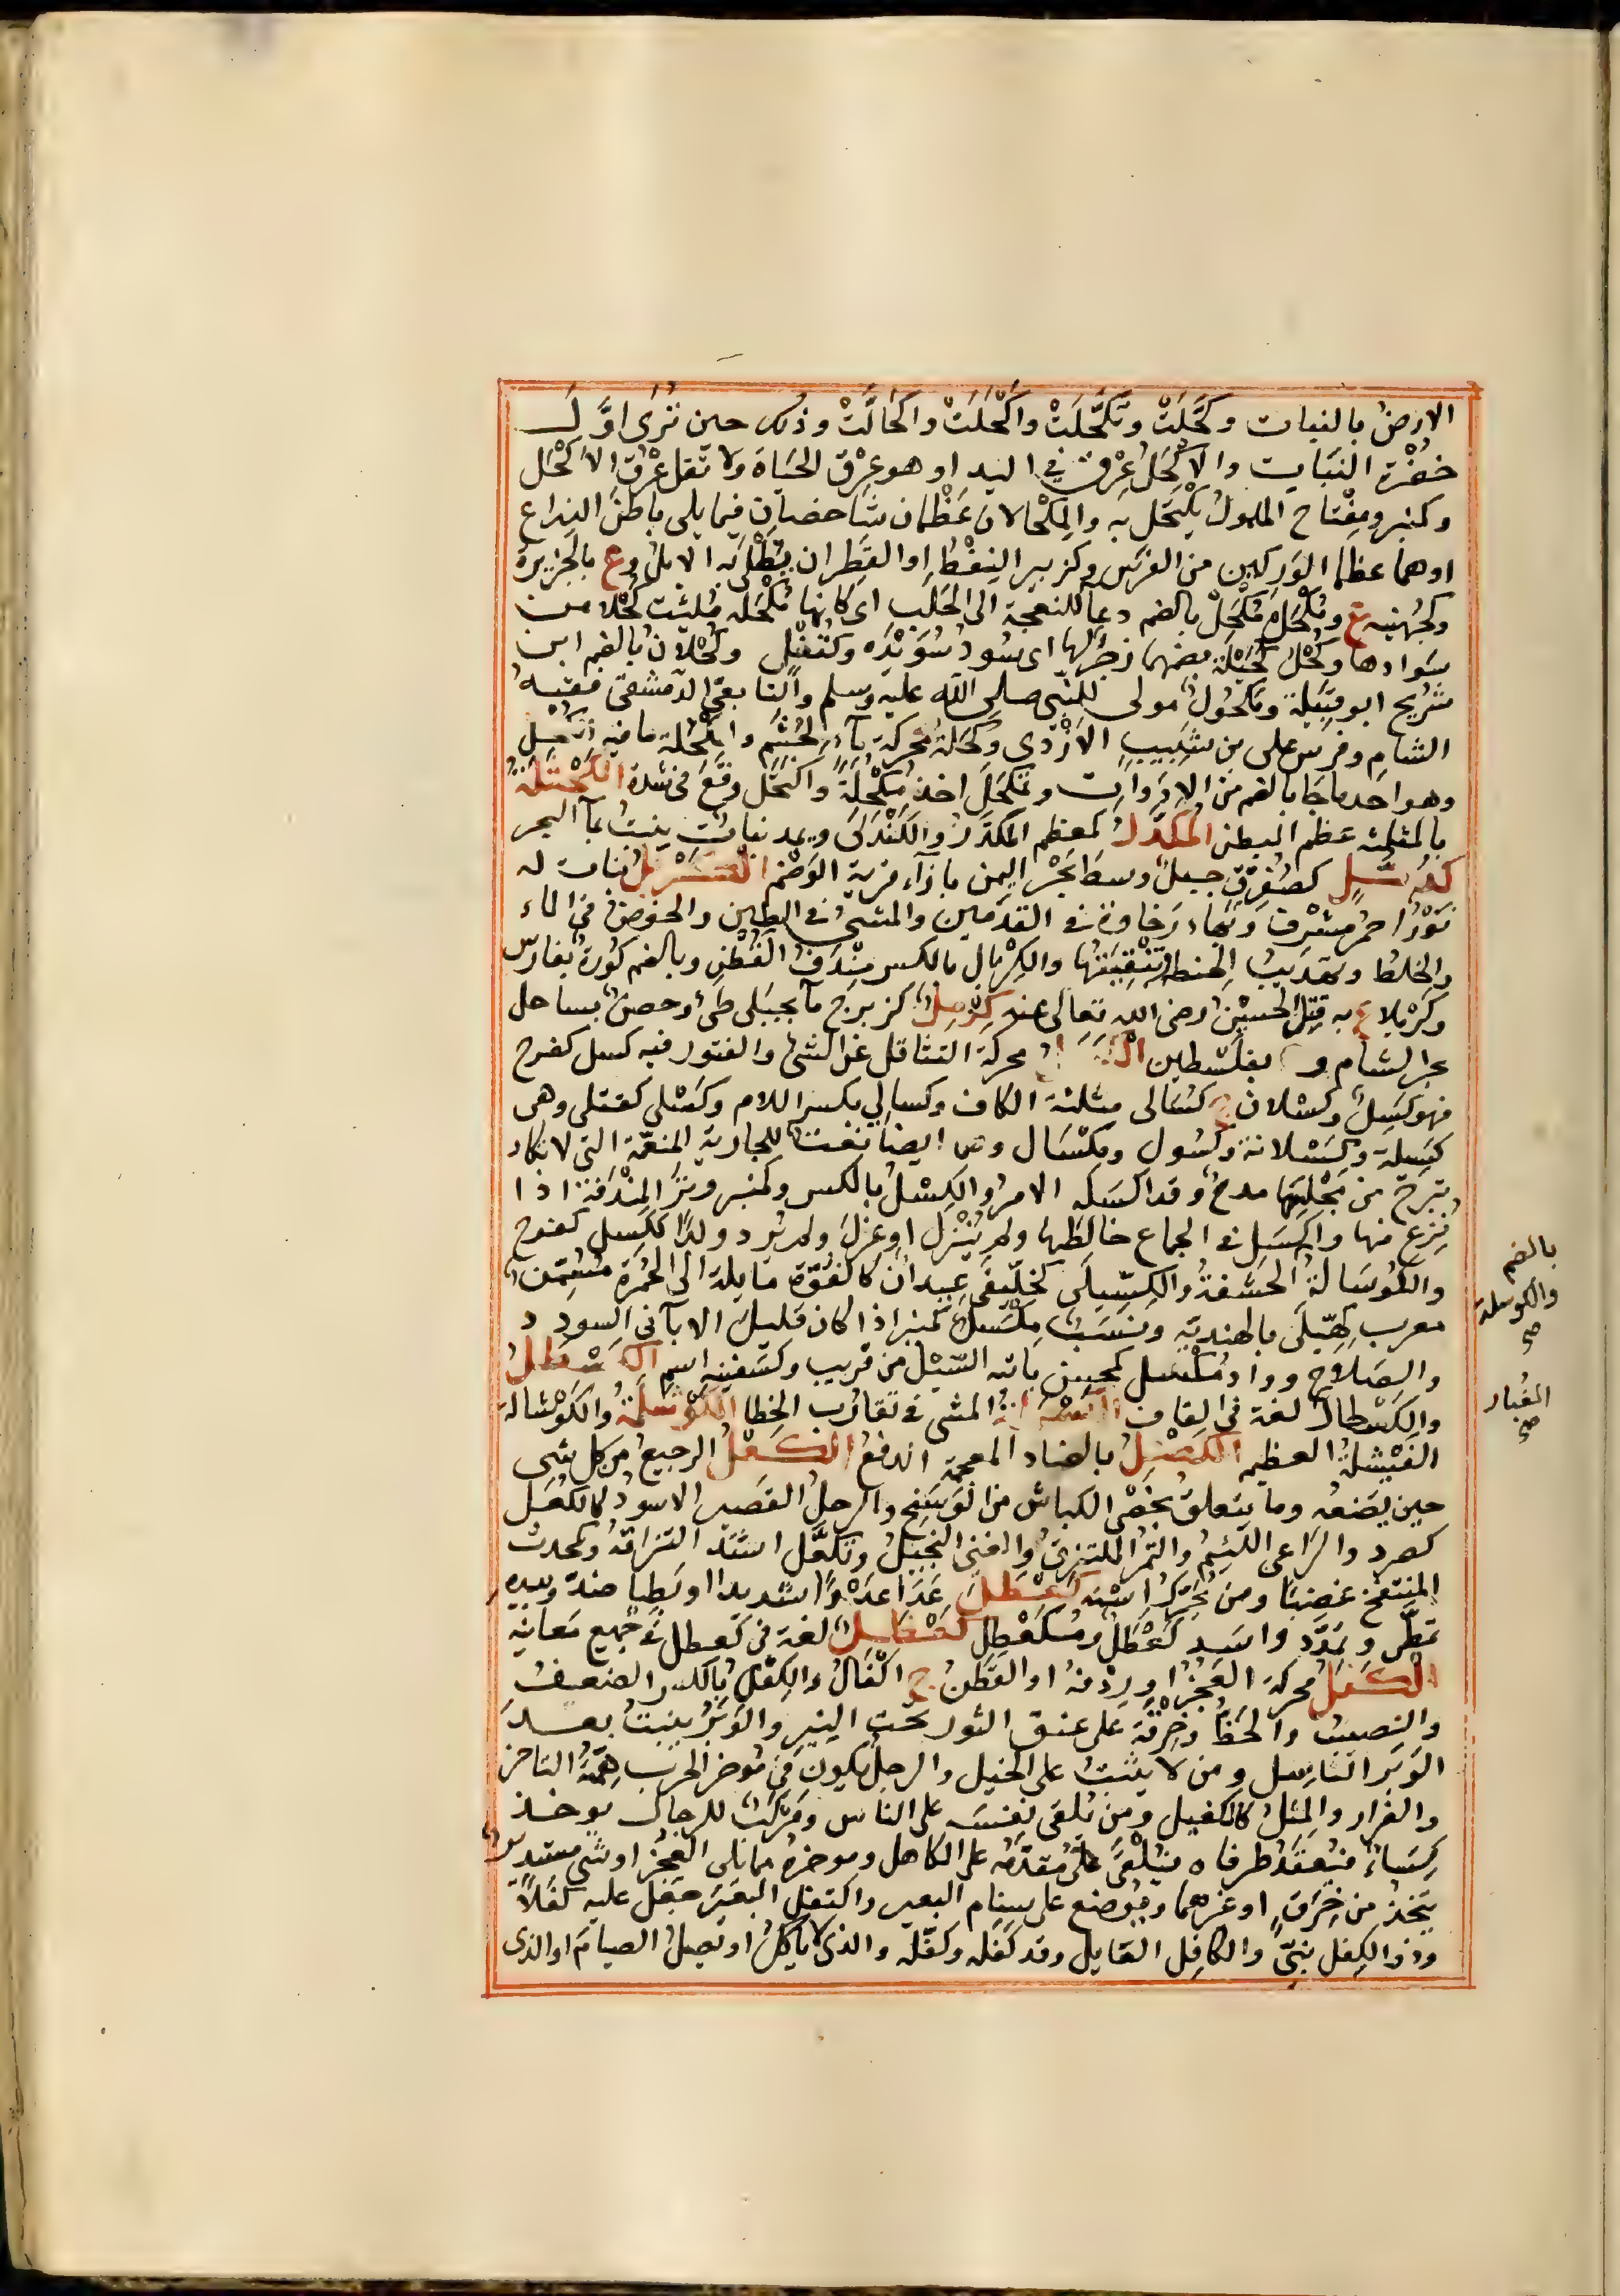 الارض بالنبات وكَحَّلَتْ وتَكَحَّلَتْ واكْحَلَتْ واكْحَالَّتْ وذلك حين تُرَى اوَّلُ
خُضْرَة النَبَات والاَكْحَلُ عِرْقٌ في اليد او هو عِرْقُ الحَيَاة ولا تقل عِرْقُ الاَكْحَل
وكمنبر ومِفْتاح المُلمول يُكْتَحَل به والمِكْحالان عَظْمان شاخصَان فيما يلى باطن الذراع
او هما عظما الوَرِكين من الفرس وكزبير النِفْط او القَطِران يُطْلَى به الابل وع بالجزيرة
وكجُهَينه ع ومُكْحُل مُكْحُل بالضم دعاء للنعجة الى الحَلَب اى كانها مُكْحُله مُلِئَت كُحْلا من
سَوادها وكُحْل كُحَيْلَة بضمهما زجر لها اى سُود سُوَيْدَه وكقُفْل وكُحْلان بالضم ابن
شُرَيح ابو قبيلة ومَكْحُول مولى للنبي صلى الله عليه وسلم والتابعي الدمشقى فقيه
الشام وفرس على بن شبيب الاَزْدى وكَحَلَة محركة ماء لجُشَم والمُكْحُلة ما فيه الكُحْل
وهو احد ما جا بالضم من الادوات وتمكحل اخذ مُكْحُلَةً واكتحل وقع في شدة الكَحْثَلَة
بالمثلثة عظم البطن المُكَدَّل كمعظم المكدَّر والكَنْدَلَى ويمد نبات ينبت بماء البحر
كذ مل كصُفُرُّق جبل وسط بحر اليمن بازاء قرية الوَضْم الكَرْبَل نبات له
نَوْر احمر مشرق وبهاء رخاوة في القدمين والمشى في الطين والخوض في الماء
والخلط وتهذيب الحنطة وتَنْقِيَتها والكِرْبال بالكسر مِنْدَف القُطْن وبالضم كُورة بفارس
وكَرْبلاء ع به قتل الحسين رضى الله تعالى عنه كِرْمِل كزبرج ماء بجبلى طيئ وحصن بساحل
بحر الشام و بفلسطين الكَسَل محركة التثاقل عن الشئ والفتور فيه كسل كفرح
فهو كَسِل وكسلان ج كسالى مثلثة الكاف وكسالى بكسر اللام وكَسْلى كقتلى وهى
كسِلة وكَسْلانة وكَسُول ومِكْسَال وهما ايضا نعت للجارية المنعمة التى لا تكاد
تبرح من مجلسها مدح وقد اكسله الامر والكِسْل بالكسر وكمنبر وتر المِنْدَفة اذا
نُزِعَ منها واكسل في الجماع خالطها ولم يُنْزل او عزل ولم يُرد ولدا ككسل كفرح
والكَوْسَالَة الحَشَفَة والكِسِّيلَى كخِلِّيفَى عيدان كالفُوّة مايلة الى الحُمرة مُسَمِّن
معرب كِهْيَلَى بالهندية ونَسَب مِكْسَل كمنبر اذا كان قليل الاباء في السودد
والصَلاح وواد مُكْسِل كمحسن ياته السَيْل من قريب وكسَفينه اسم الكَسْطَل
والكَسْطال لغة في القاف المشى في تقارُب الخطا الكَوْشَلَة والكَوْشالة
الفَيْشَلة العظيمة الكَضْل بالضاد المعجمة الدفع الكَعْل الرجيع من كل شى
حين يَضَعه وما يتعلق بخُصَى الكباش من الوَسَخ والرجل القَصير الاسود كالكُعَل
كصرد والراعى اللئيم والتمر الملتزق والغنى البخيل وتكعَّل اشتد التزاقه وكمحدث
المنتفخ غضبًا ومن يُحَرِّك استه كَعْطَل عَدَا عَدْوًا شديدا او بطيا ضد وبيده
تمطَّى وتمَدَّد واسد كَعْطَل ومُكَعْطِل كعظل لغة في كعطل في جميع معانيه
الكَفَل محركة العَجُز او رِدْفه او القَطَن ج اكْفَال والكِفْل بالكسر الضعيف
والنصيب والحَظ وخِرْقَة على عنق الثور تحت النير والوَبَر ينبت بعد
الوَبَر النَاسِل ومن لا يثبت على الخيل والرجل يكون في موخر الحرب هِمَّته التاخر
والفِرار والمِثل كالكفيل ومن تُلقى نفسَه على الناس ومَرْكَب للرجال يوخذ
كِسَاء فيُعقَد طرفاه فيُلْقَى مُقدَّمه على الكاهل وموخره مما يلى العجُز او شى مستدير
يتخذ من خِرَق او غيرهما ويوضع على سنام البعير واكتفل البَعير جعل عليه كفلا
وذوالكِفل نبيّ والكافِل العايل وقد كفله وكفّله والذى لا ياكل او يَصل الصيام او الذى
بالضم
والكوسلة
صح
الغُبار
صح